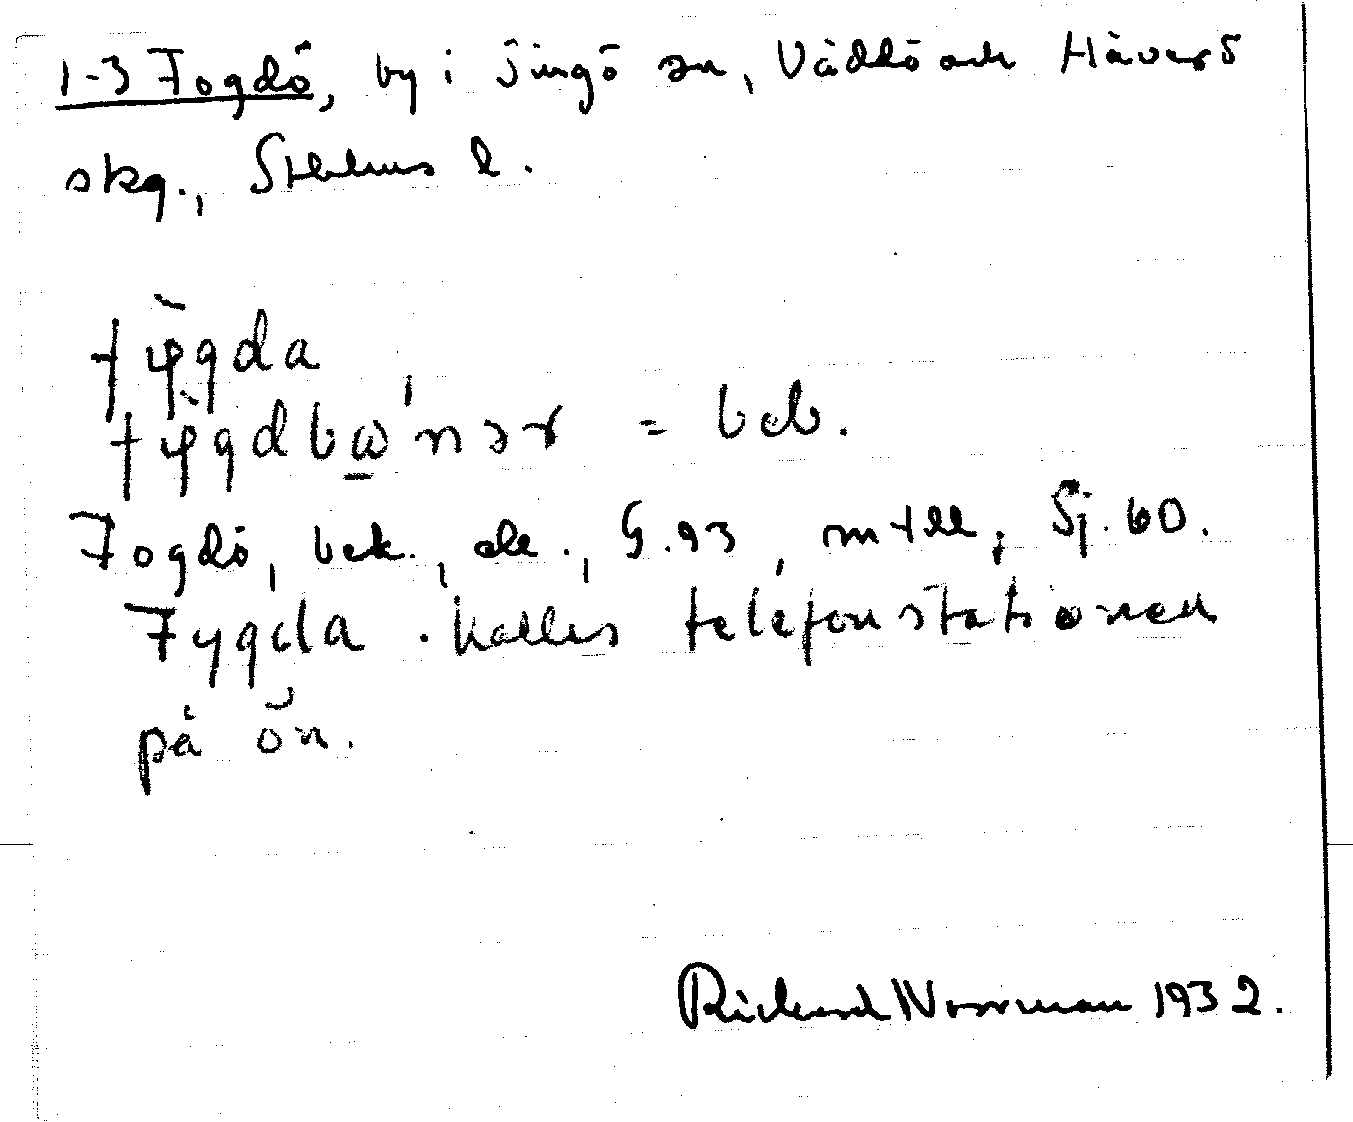 1-3 Fogdö, by i Singö sn, Väddö och Häverö
skg., Sthlms l.
fφ̀gda
fφ̀gdbω̲'nər = beb.
Fogdö, bek., de., G. 93, mtll, Sj. 60.
Fygda . kallas telefonstationen
på ön.
Rickard Norrman 1932.